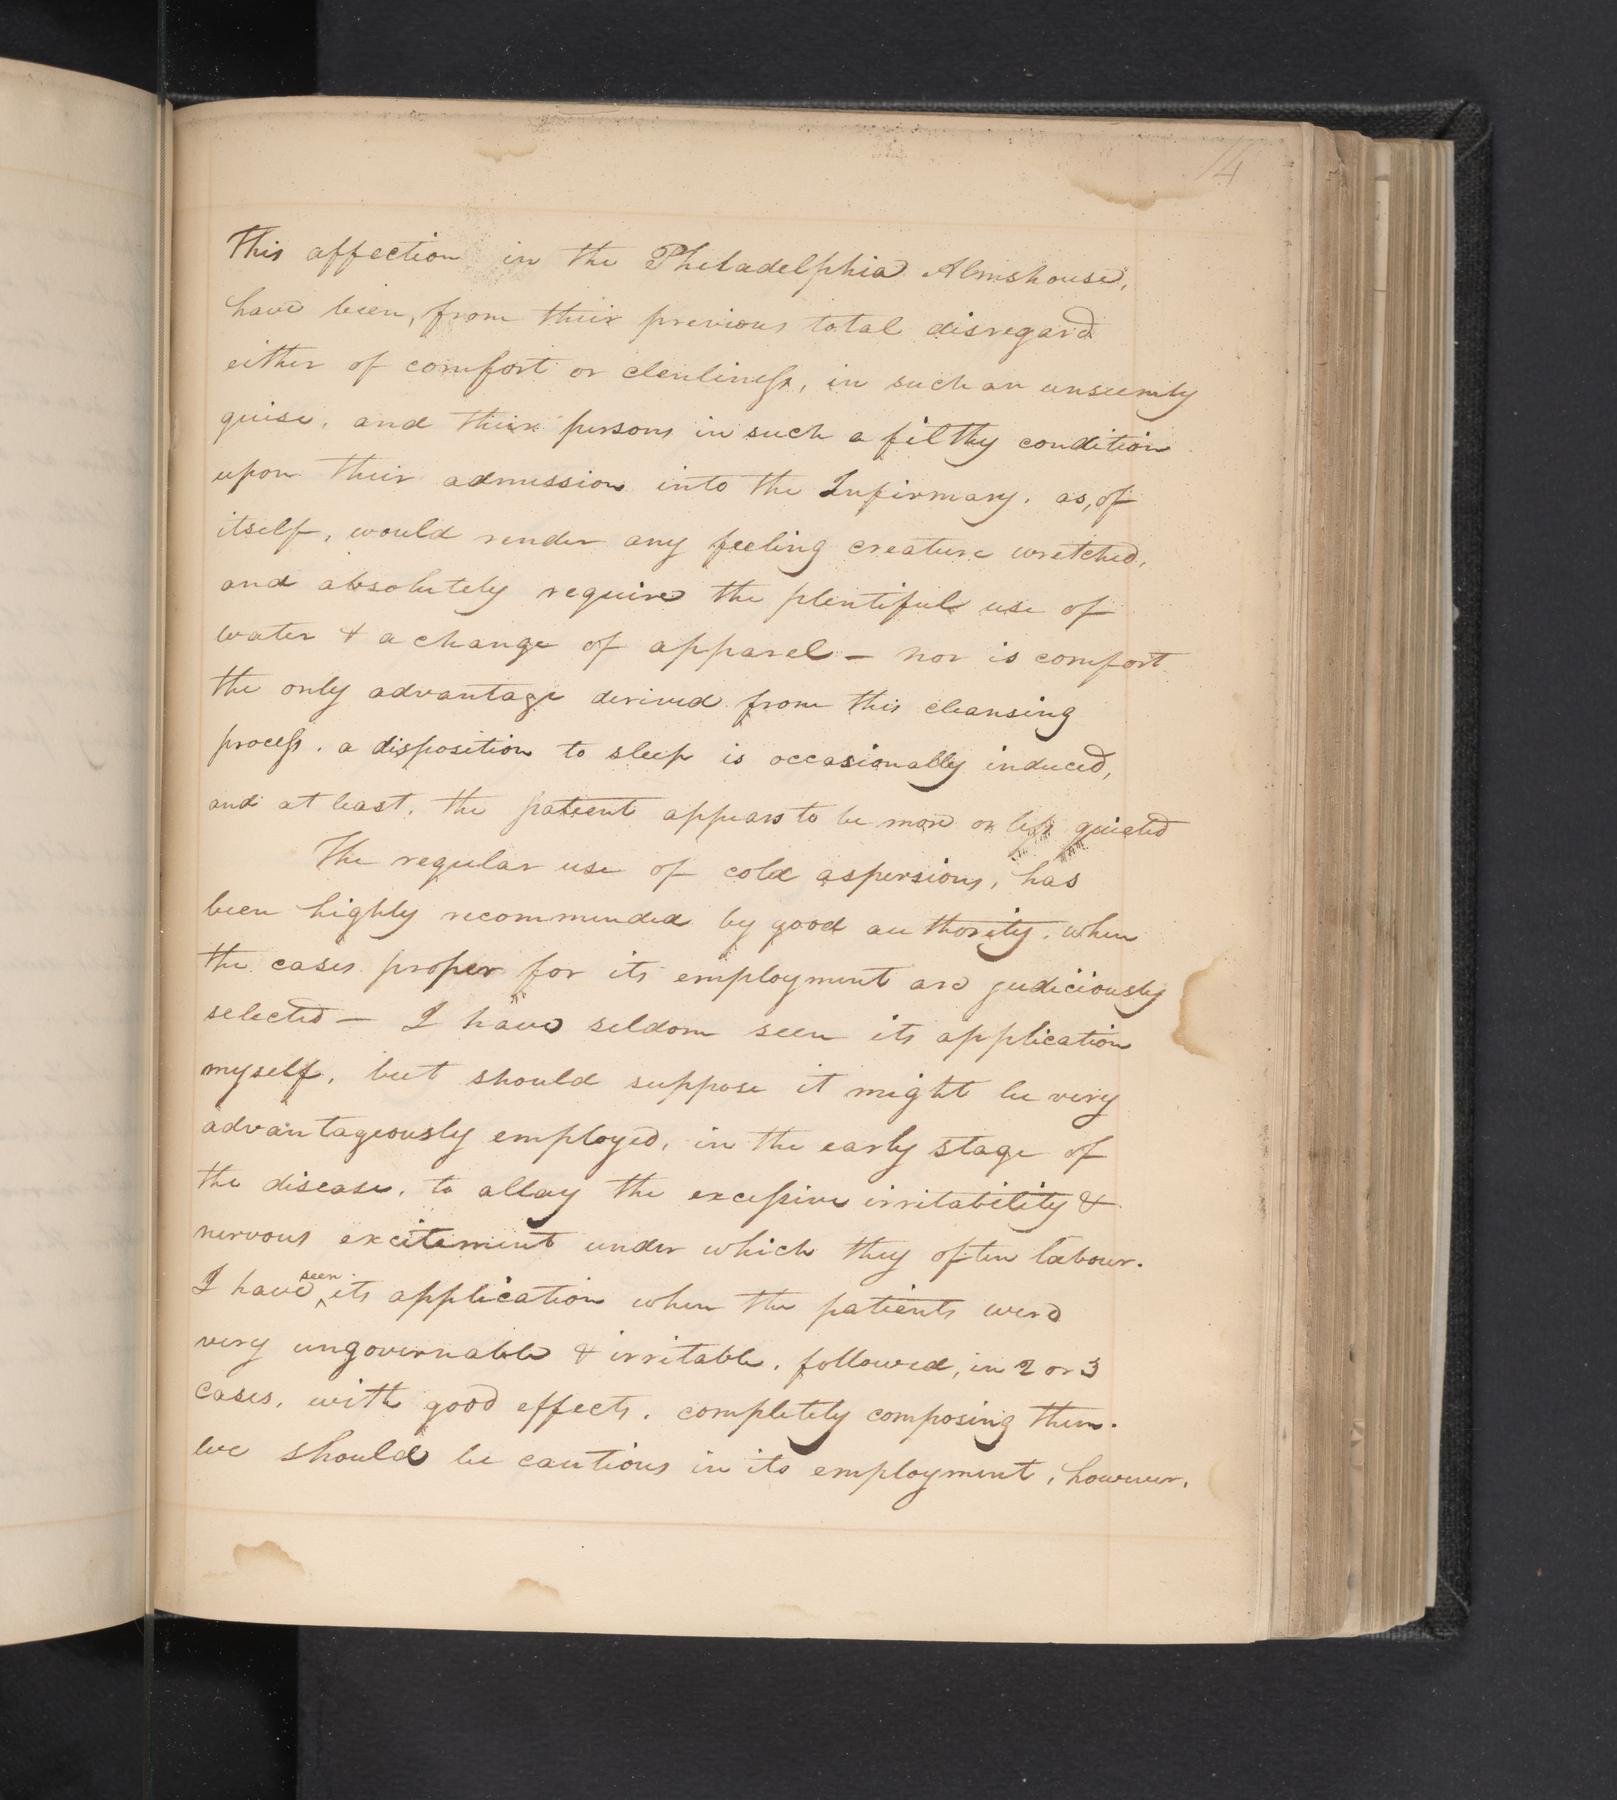 14
This affection in the Philadelphia Almshouse,
have been, from their previous total disregard
either of comfort or clenliness, in such an unseemly
guise, and their persons in such a filthy condition
upon their admission into the Infirmary, as, of
itself, would render any feeling creature wretched,
and absolutely require the plentiful use of
water & a change of apparel — nor is comfort
the only advantage derived from this cleansing
process. a disposition to sleep is occasionally induced,
and at least, the patient appears to be more or less quieted
The regular use of cold aspersions, has
been highly recommended by good authority, when
the cases proper for its employment are judiciously
selected — I have seldom seen its application
myself, but should suppose it might be very
advantageously employed, in the early stage of
the disease, to allay the excessive irritability &
nervous excitement under which they often labour.
I have seen its application when the patients were
very ungovernable & irritable, followed, in 2 or 3
cases, with good effects, completely composing them.
We should be cautious in its employment, however,